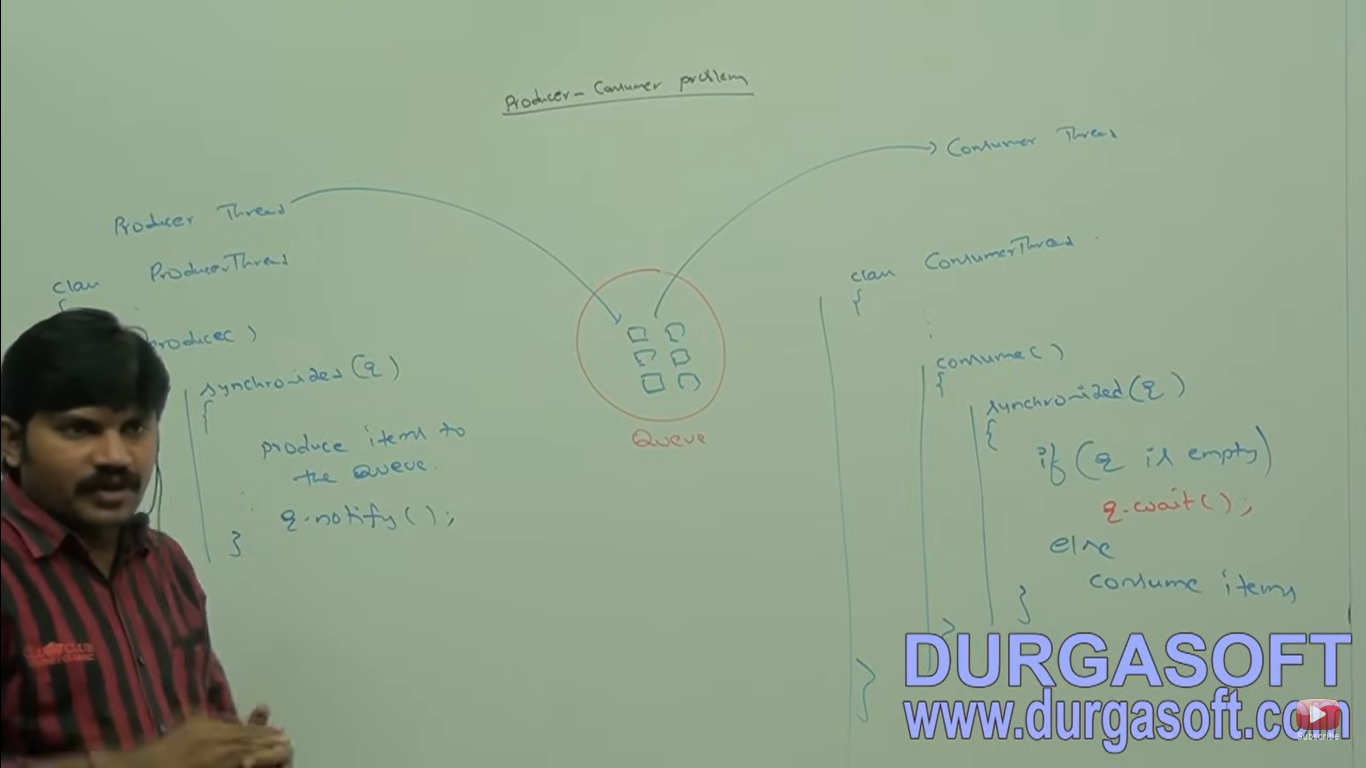 Producer - Consumer problem
Producer Thread
class ProducerThread
produce( )
synchronized(q)
{
produce items to
the Queue.
q.notify();
}
Queue
Consumer Thread
class ConsumerThread
{
consume( )
{
synchronized(q)
{
if (q is empty)
q.wait();
else
consume items
}
}
}
DURGASOFT
www.durgasoft.com
Subscribe